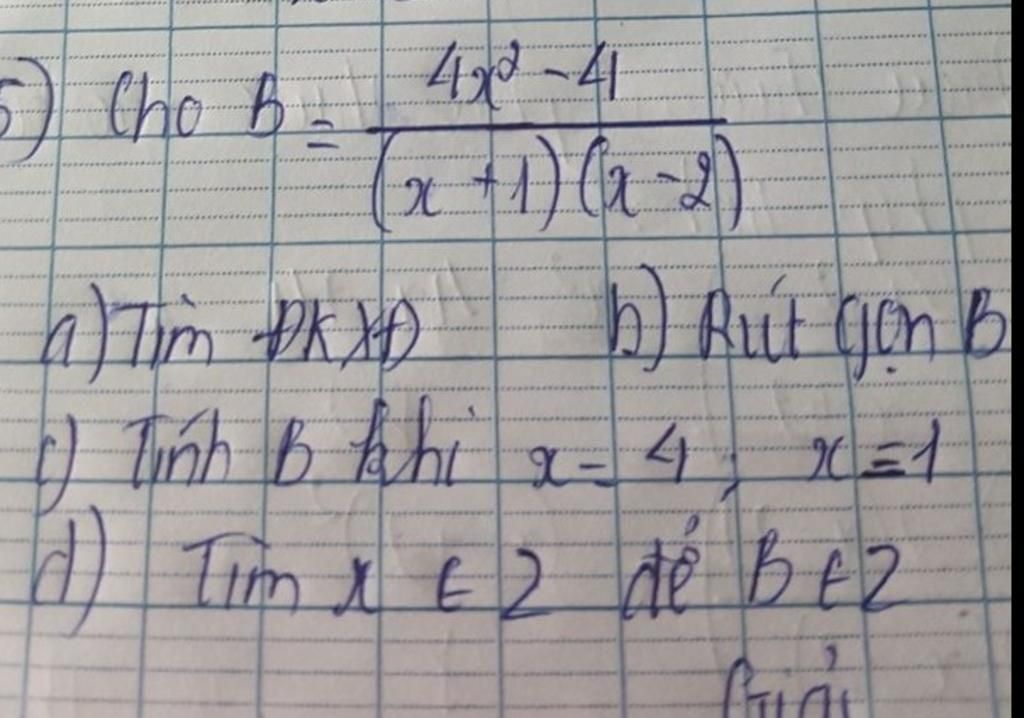 5) Cho B = \frac{4x² - 4}{(x + 1)(x - 2)}
a) Tìm ĐKXĐ b) Rút gọn B
c) Tính B khi x = 4 ; x = 1
d) Tìm x ∈ Z để B ∈ Z
Giải